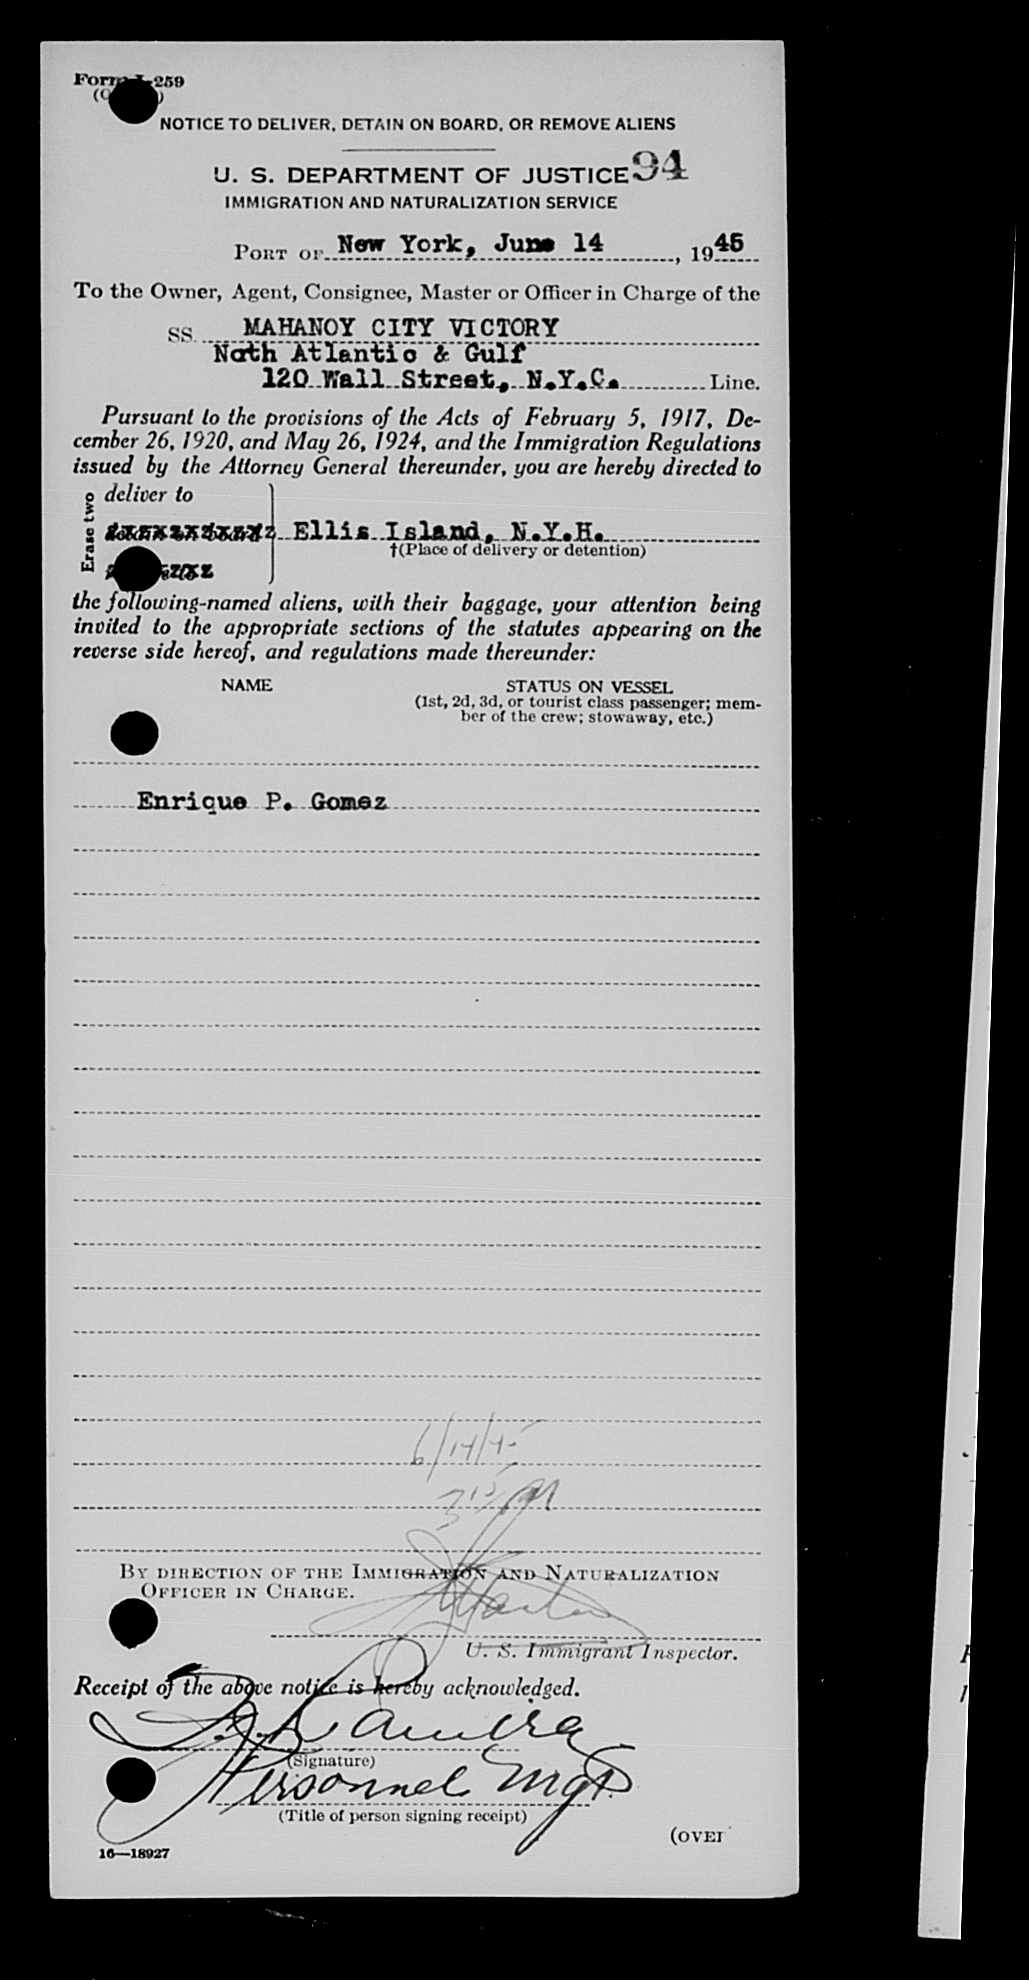 Form I-259
NOTICE TO DELIVER, DETAIN ON BOARD, OR REMOVE ALIENS
U. S. DEPARTMENT OF JUSTICE 94
IMMIGRATION AND NATURALIZATION SERVICE
PORT OF New York, June 14, 1945
To the Owner, Agent, Consignee, Master or Officer in Charge of the
SS. MAHANOY CITY VICTORY
Noth Atlantic & Gulf
120 Wall Street, N.Y.C. Line.
Pursuant to the provisions of the Acts of February 5, 1917, De-
cember 26, 1920, and May 26, 1924, and the Immigration Regulations
issued by the Attorney General thereunder, you are hereby directed to
Erase two
deliver to
Ellis Island, N.Y.H.
†(Place of delivery or detention)
the following-named aliens, with their baggage, your attention being
invited to the appropriate sections of the statutes appearing on the
reverse side hereof, and regulations made thereunder:
NAME STATUS ON VESSEL
(1st, 2d, 3d, or tourist class passenger; mem-
ber of the crew; stowaway, etc.)
Enrique P. Gomez
6/14/45
3 15 PM
BY DIRECTION OF THE IMMIGRATION AND NATURALIZATION
OFFICER IN CHARGE.
U. S. Immigrant Inspector.
Receipt of the above notice is hereby acknowledged.
(Signature)
Personnel Mgr.
(Title of person signing receipt)
(OVER
16—18927